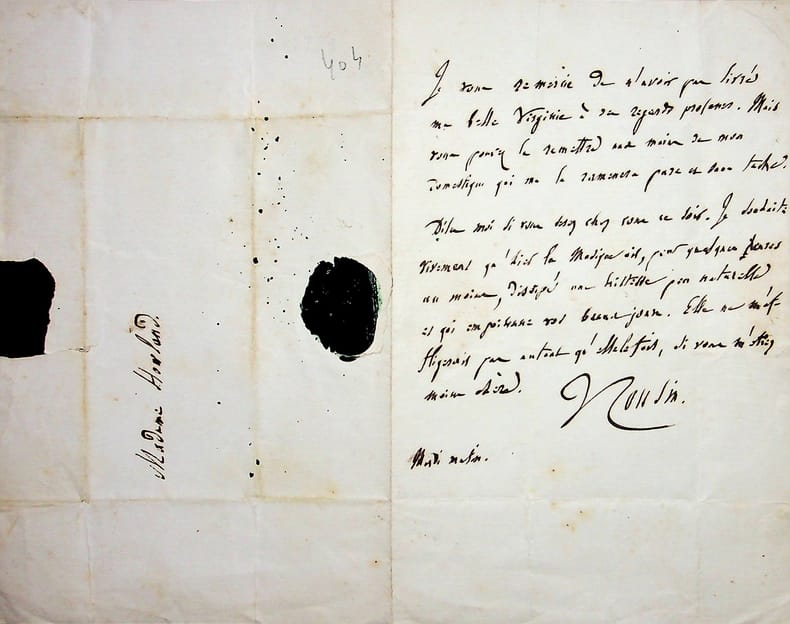 404
Madame Howland.
Je vous remercie de n'avoir pas livré
ma belle Virginie à des regards profanes. Mais
vous pouvez la remettre aux mains de mon
domestique qui me la ramenera pure et sans tache.
Dites moi si vous serez chez vous ce soir. Je souhaite
vivement qu'hier la Musique ait, pour quelques heures
au moins, dissipé une tristesse peu naturelle
et qui empoisonne vos beaux jours. Elle ne m'af-
fligerait pas autant qu'elle le fait, si vous m'étiez
moins chère.
Mardi matin.